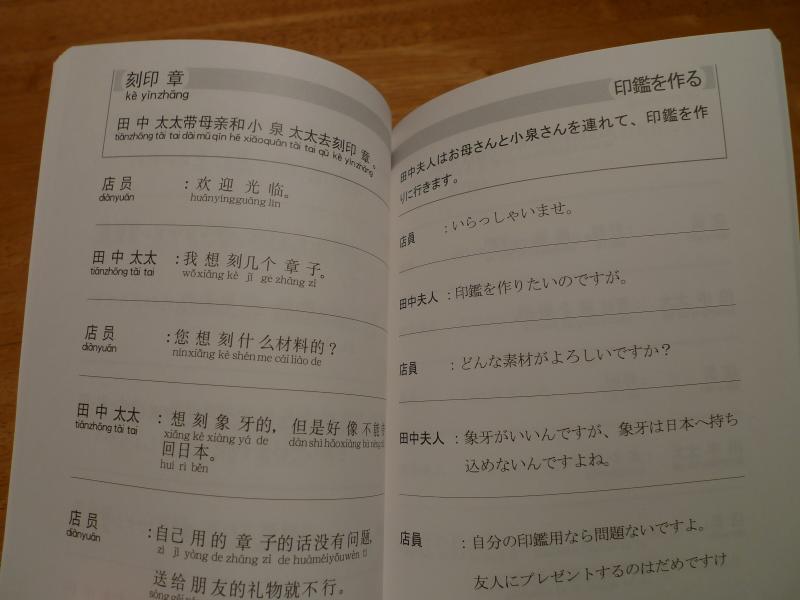 刻印 章
kè yìnzhāng
田 中 太太带母亲和小 泉 太太去刻印 章。
tiánzhōng tài tai dài mǔ qīn hé xiǎoquán tài tai qù kè yìnzhāng
店员 ：欢 迎 光 临。
diànyuán huānyíngguāng lín
田 中 太太 ：我 想 刻几 个 章 子。
tiánzhōng tài tai wǒxiǎng kè jǐ ge zhāng zi
店 员 ：您 想 刻 什么 材料 的？
diànyuán nínxiǎng kè shén me cái liào de
田 中 太太 ：想 刻 象 牙的， 但是 好 像 不能
tiánzhōng tài tai xiǎng kè xiàng yá de dàn shì hǎoxiàng bù néng
回日本。
huí rì běn
店 员 ：自己 用 的 章 子的话没有问题，
diànyuán zì jǐ yòng de zhāng zi de huàméiyǒuwèn tí
送给 朋友的礼物就不行。
印鑑を作る
田中夫人はお母さんと小泉さんを連れて、印鑑を作
りに行きます。
店員 ：いらっしゃいませ。
田中夫人 ：印鑑を作りたいのですが。
店員 ：どんな素材がよろしいですか？
田中夫人 ：象牙がいいんですが、象牙は日本へ持ち
込めないんですよね。
店員 ：自分の印鑑用なら問題ないですよ。
友人にプレゼントするのはだめですけ